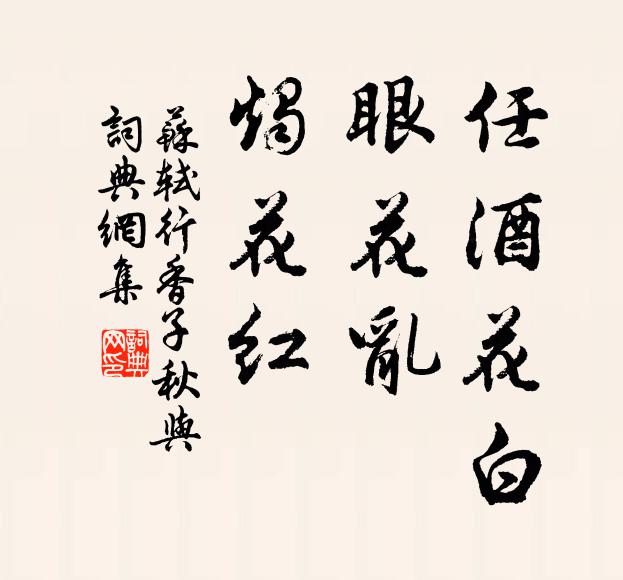 任酒花白
眼花亂
燭花红
蘇軾行香子秋與
詞典網集
詞典
网印